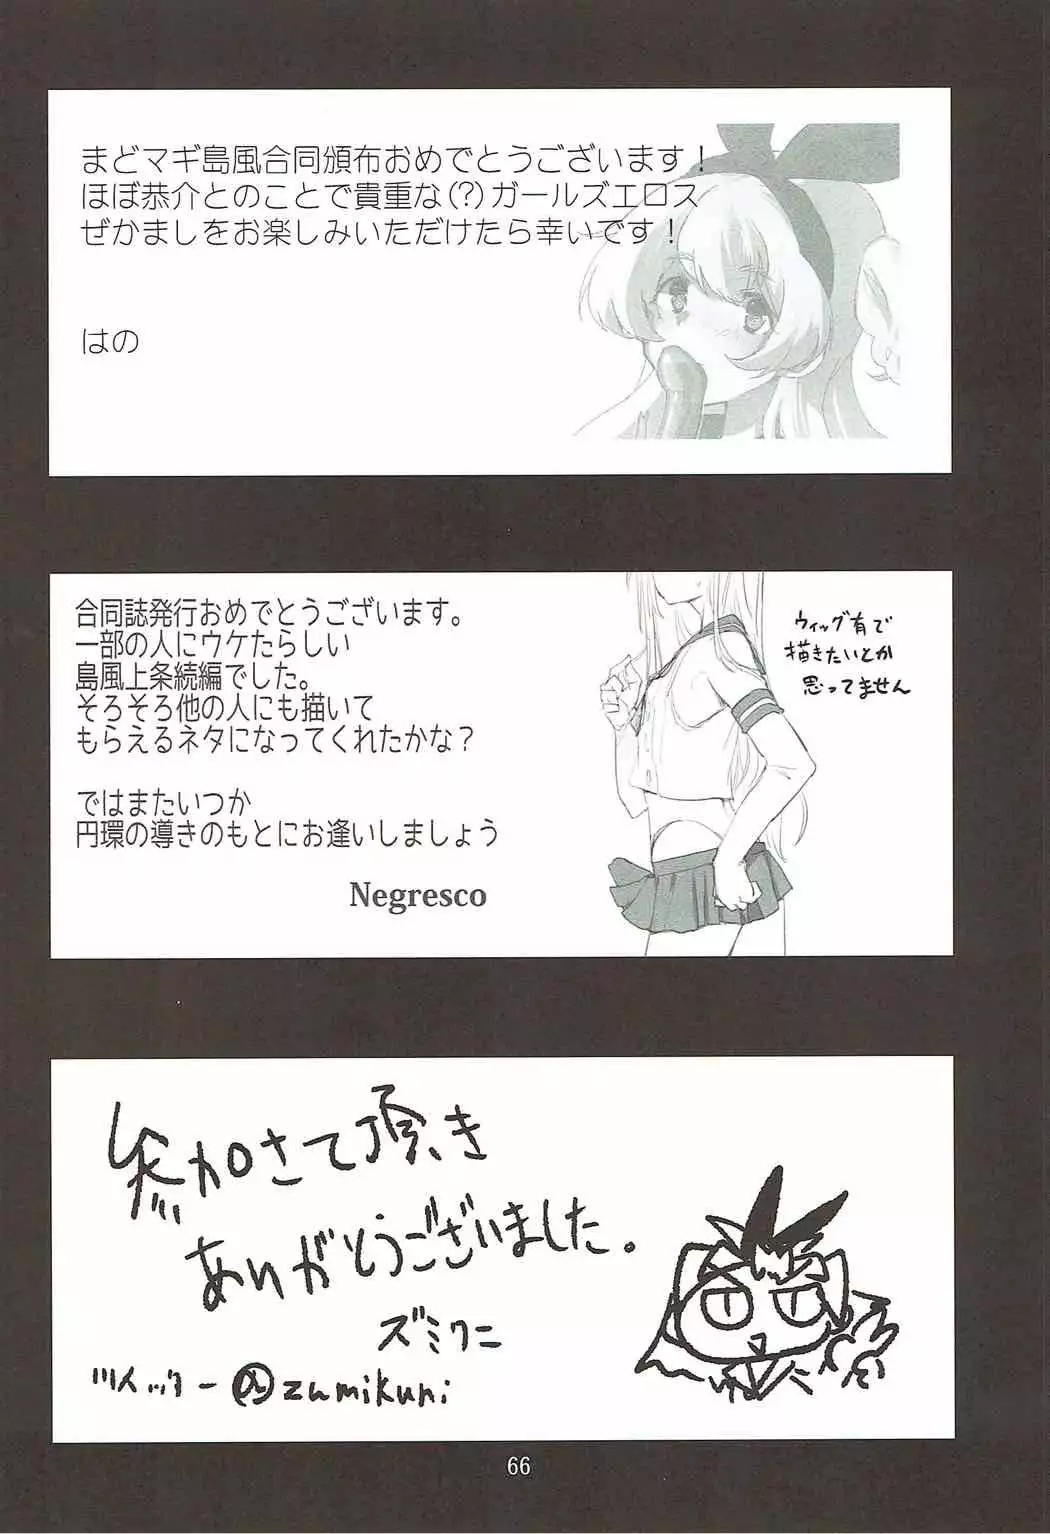 まどマギ島風合同頒布おめでとうございます！
ほぼ恭介とのことで貴重な(?)ガールズエロス
ぜかましをお楽しみいただけたら幸いです！
はの
合同誌発行おめでとうございます。
一部の人にウケたらしい
島風上条続編でした。
そろそろ他の人にも描いて
もらえるネタになってくれたかな？
ではまたいつか
円環の導きのもとにお逢いしましょう
Negresco
ウィッグ有で
描きたいとか
思ってません
参加させて頂き
ありがとうございました。
ズミクニ
ツイッター@zumikuni
66